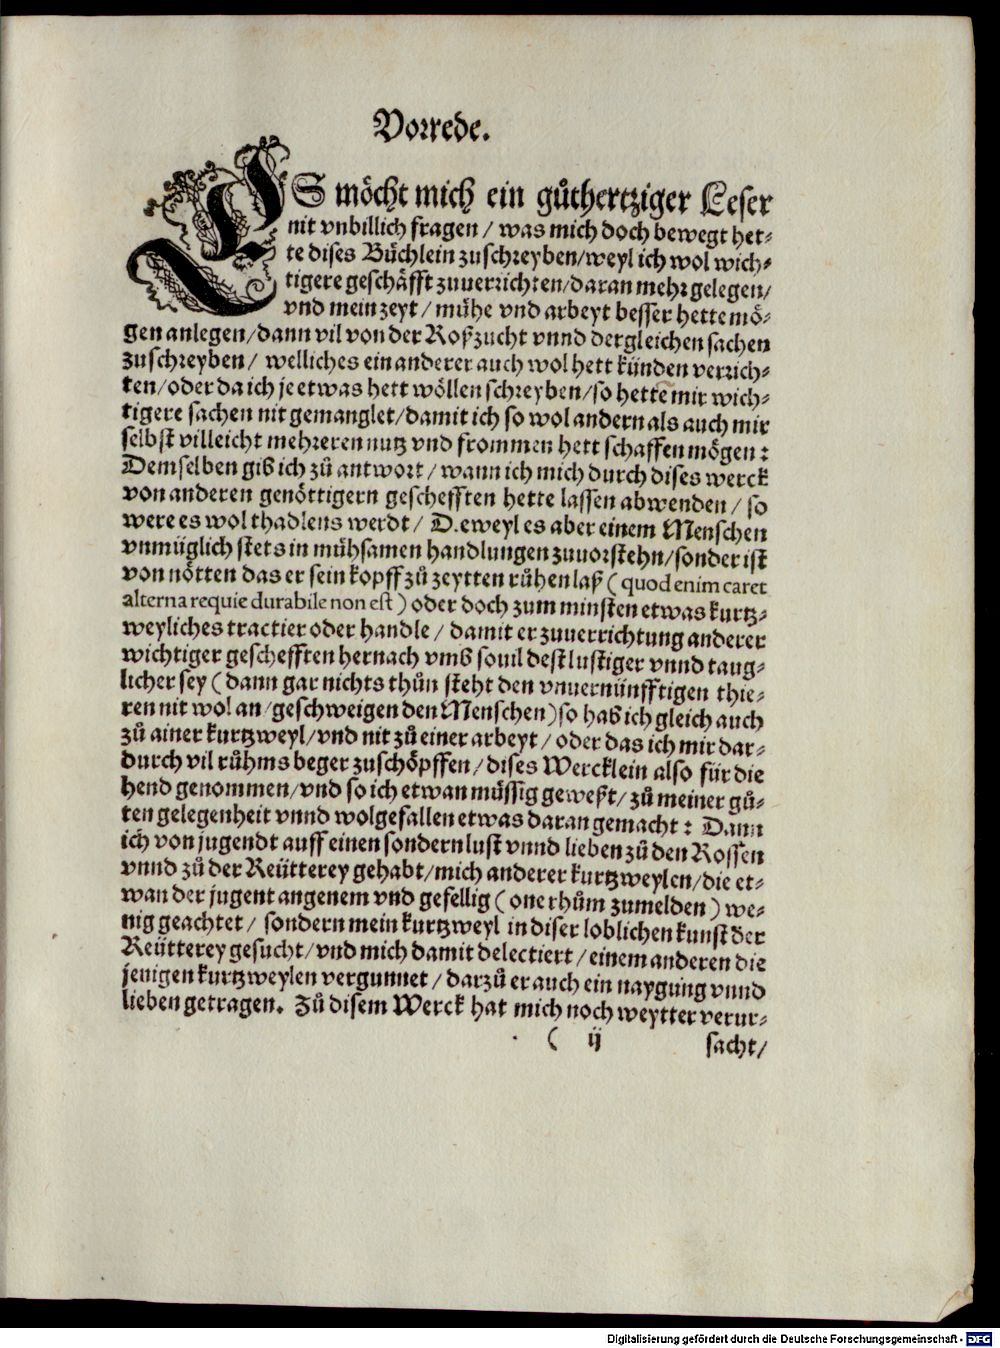 Vorrede.
ES möcht mich ein gůthertziger Leser
nit vnbillich fragen / was mich doch bewegt het-
te dises Büchlein zuschreyben/weyl ich wol wich-
tigere geschäfft zuuerrichten/daran mehr gelegen/
vnd mein zeyt / mühe vnd arbeyt besser hette mö-
gen anlegen/dann vil von der Roßzucht vnnd dergleichen sachen
zuschreyben / welliches ein anderer auch wol hett künden verrich-
ten/oder da ich je etwas hett wöllen schreyben/so hette mir wich-
tigere sachen nit gemanglet/damit ich so wol andern als auch mir
selbst villeicht mehreren nutz vnd frommen hett schaffen mögen:
Demselben gib ich zů antwort / wann ich mich durch dises werck
von anderen genöttigern geschefften hette lassen abwenden / so
were es wol thadlens werdt / D.eweyl es aber einem Menschen
vnmüglich stets in mühsamen handlungen zuuorstehn/sonder ist
von nötten das er sein kopff zů zeytten růhen laß ( quod enim caret
alterna requie durabile non est ) oder doch zum minsten etwas kurtz-
weyliches tractier oder handle / damit er zuuerrichtung anderer
wichtiger geschefften hernach vmb souil dest lustiger vnnd taug-
licher sey ( dann gar nichts thůn steht den vnuernünfftigen thie-
ren nit wol an/geschweigen den Menschen)so hab ich gleich auch
zů ainer kurtzweyl/vnd nit zů einer arbeyt / oder das ich mir dar-
durch vil růhms beger zuschöpffen / dises Wercklein also für die
hend genommen/vnd so ich etwan müssig geweßt/ zů meiner gů-
ten gelegenheit vnnd wolgefallen etwas daran gemacht : Dann
ich von jugendt auff einen sondern lust vnnd lieben zů den Rossen
vnnd zů der Reütterey gehabt/mich anderer kurtzweylen/die et-
wan der jugent angenem vnd gefellig ( one rhům zumelden ) we-
nig geachtet / sondern mein kurtzweyl in diser loblichen kunst der
Reütterey gesucht/vnd mich damit delectiert / einem anderen die
jenigen kurtzweylen vergunnet / darzů er auch ein naygung vnnd
lieben getragen. Zů disem Werck hat mich noch weytter verur-
( ij sacht/
Digitalisierung gefördert durch die Deutsche Forschungsgemeinschaft - DFG